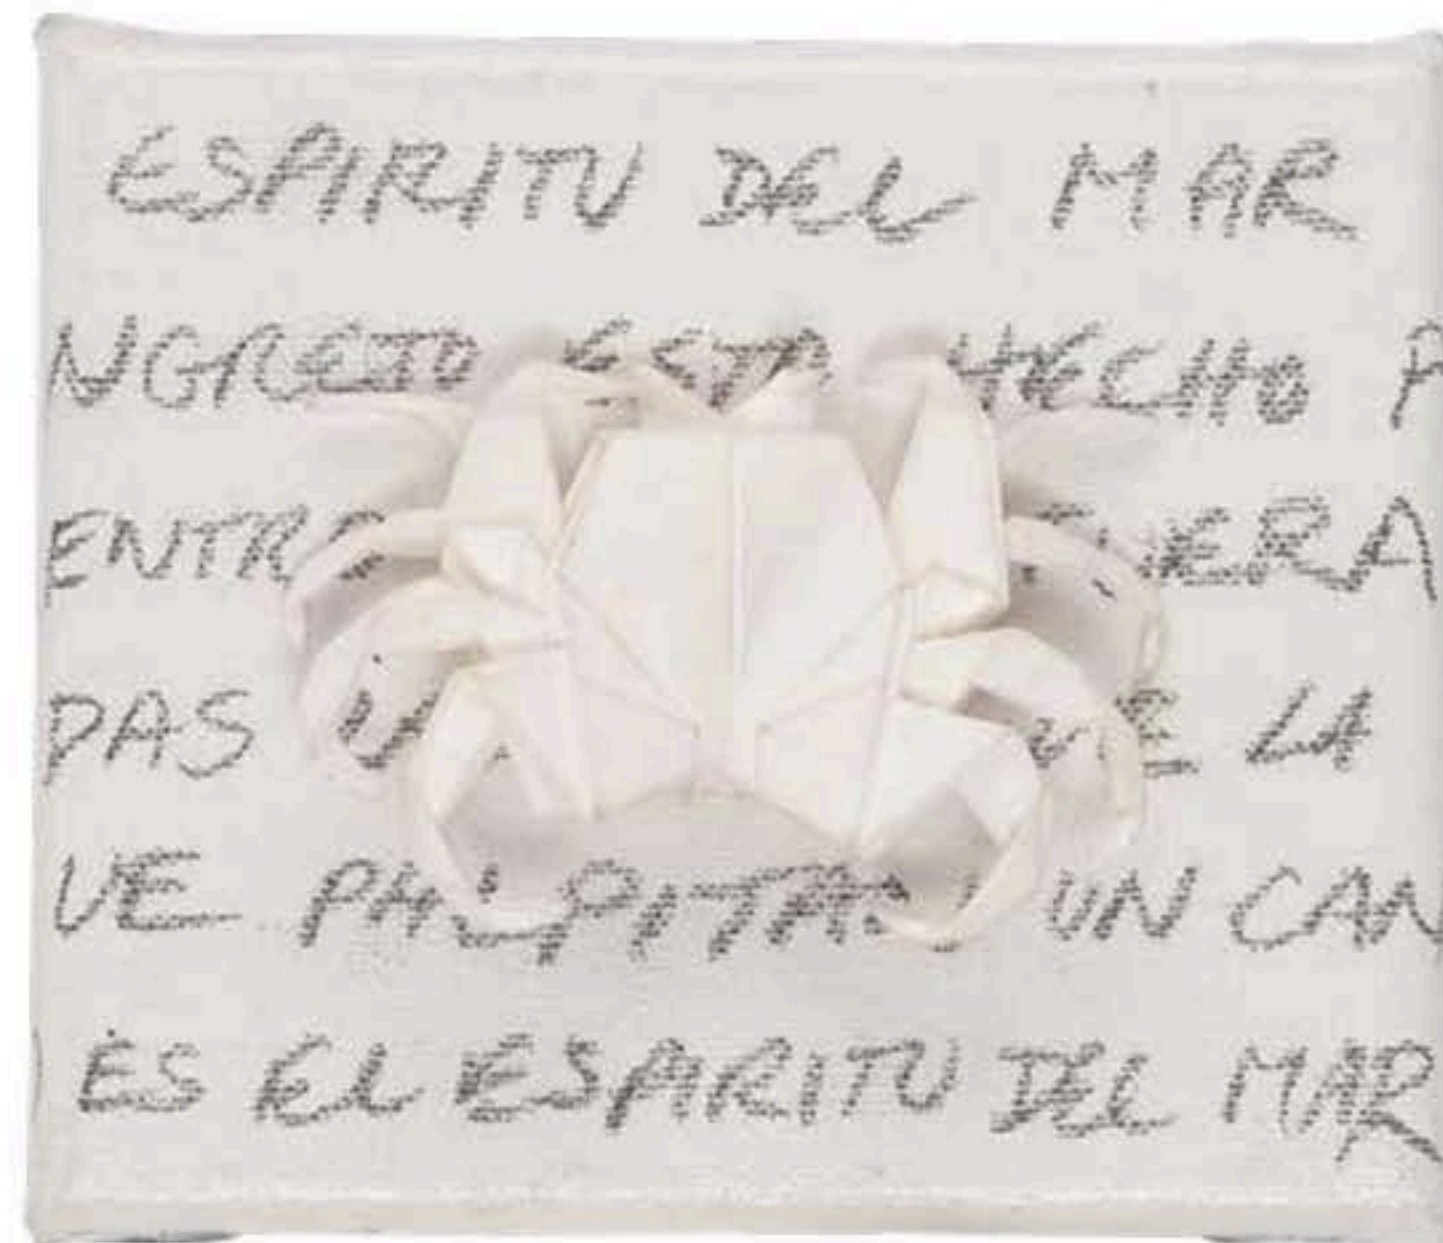 ESPIRITU DEL MAR
NGREJO ESTA HECHO P
ENTR UERA
DAS LA
VE PALPITA UN CAN
ES EL ESPIRITU DEL MAR